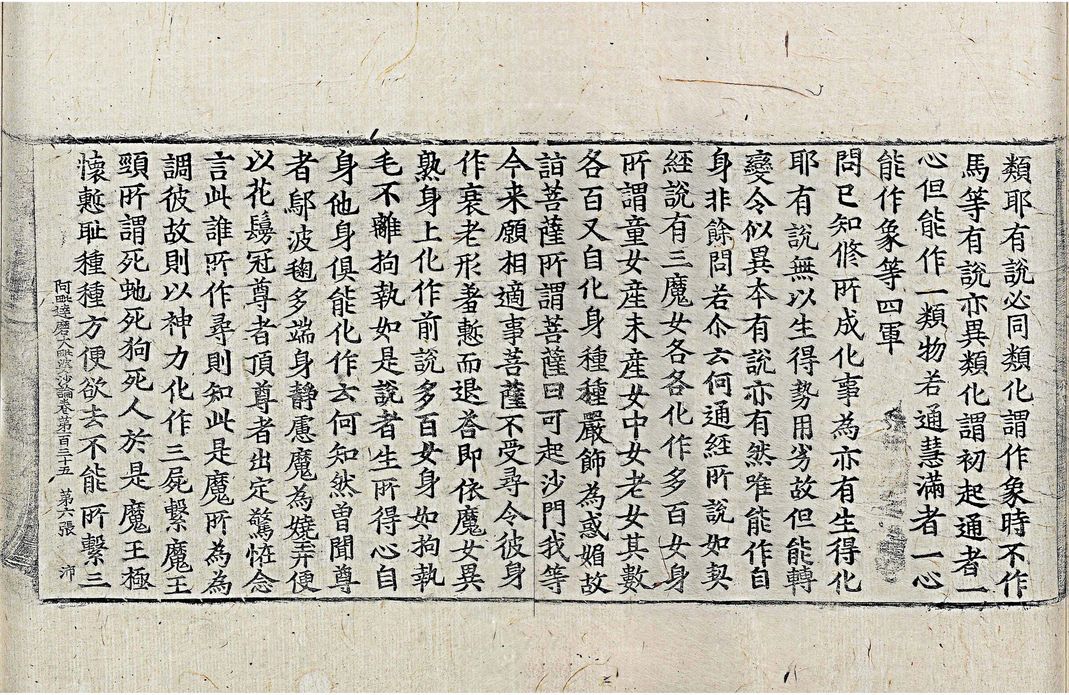 類耶有說必同類化謂作象時不作
馬等有說亦異類化謂初起通者一
心但能作一類物若通慧滿者一心
能作象等四軍
問已知修所成化事為亦有生得化
耶有說無以生得勢用劣故但能轉
變令似異本有說亦有然唯能作自
身非餘問若尒云何通經所說如契
經說有三魔女各各化作多百女身
所謂童女產未產女中女老女其數
各百又自化身種種嚴飾為惑媚故
詣菩薩所謂菩薩曰可起沙門我等
今来願相適事菩薩不受尋令彼身
作衰老形羞慙而退荅即依魔女異
熟身上化作前說多百女身如拘執
毛不離拘執如是說者生所得心自
身他身俱能化作云何知然曾聞尊
者鄔波毱多端身靜慮魔為嬈弄便
以花鬘冠尊者頂尊者出定驚恠念
言此誰所作尋則知此是魔所為為
調彼故則以神力化作三屍繫魔王
頸所謂死虵死狗死人於是魔王極
懷慙耻種種方便欲去不能所繫三
阿毗達磨大毗婆沙論卷第一百三十五 第六張 沛